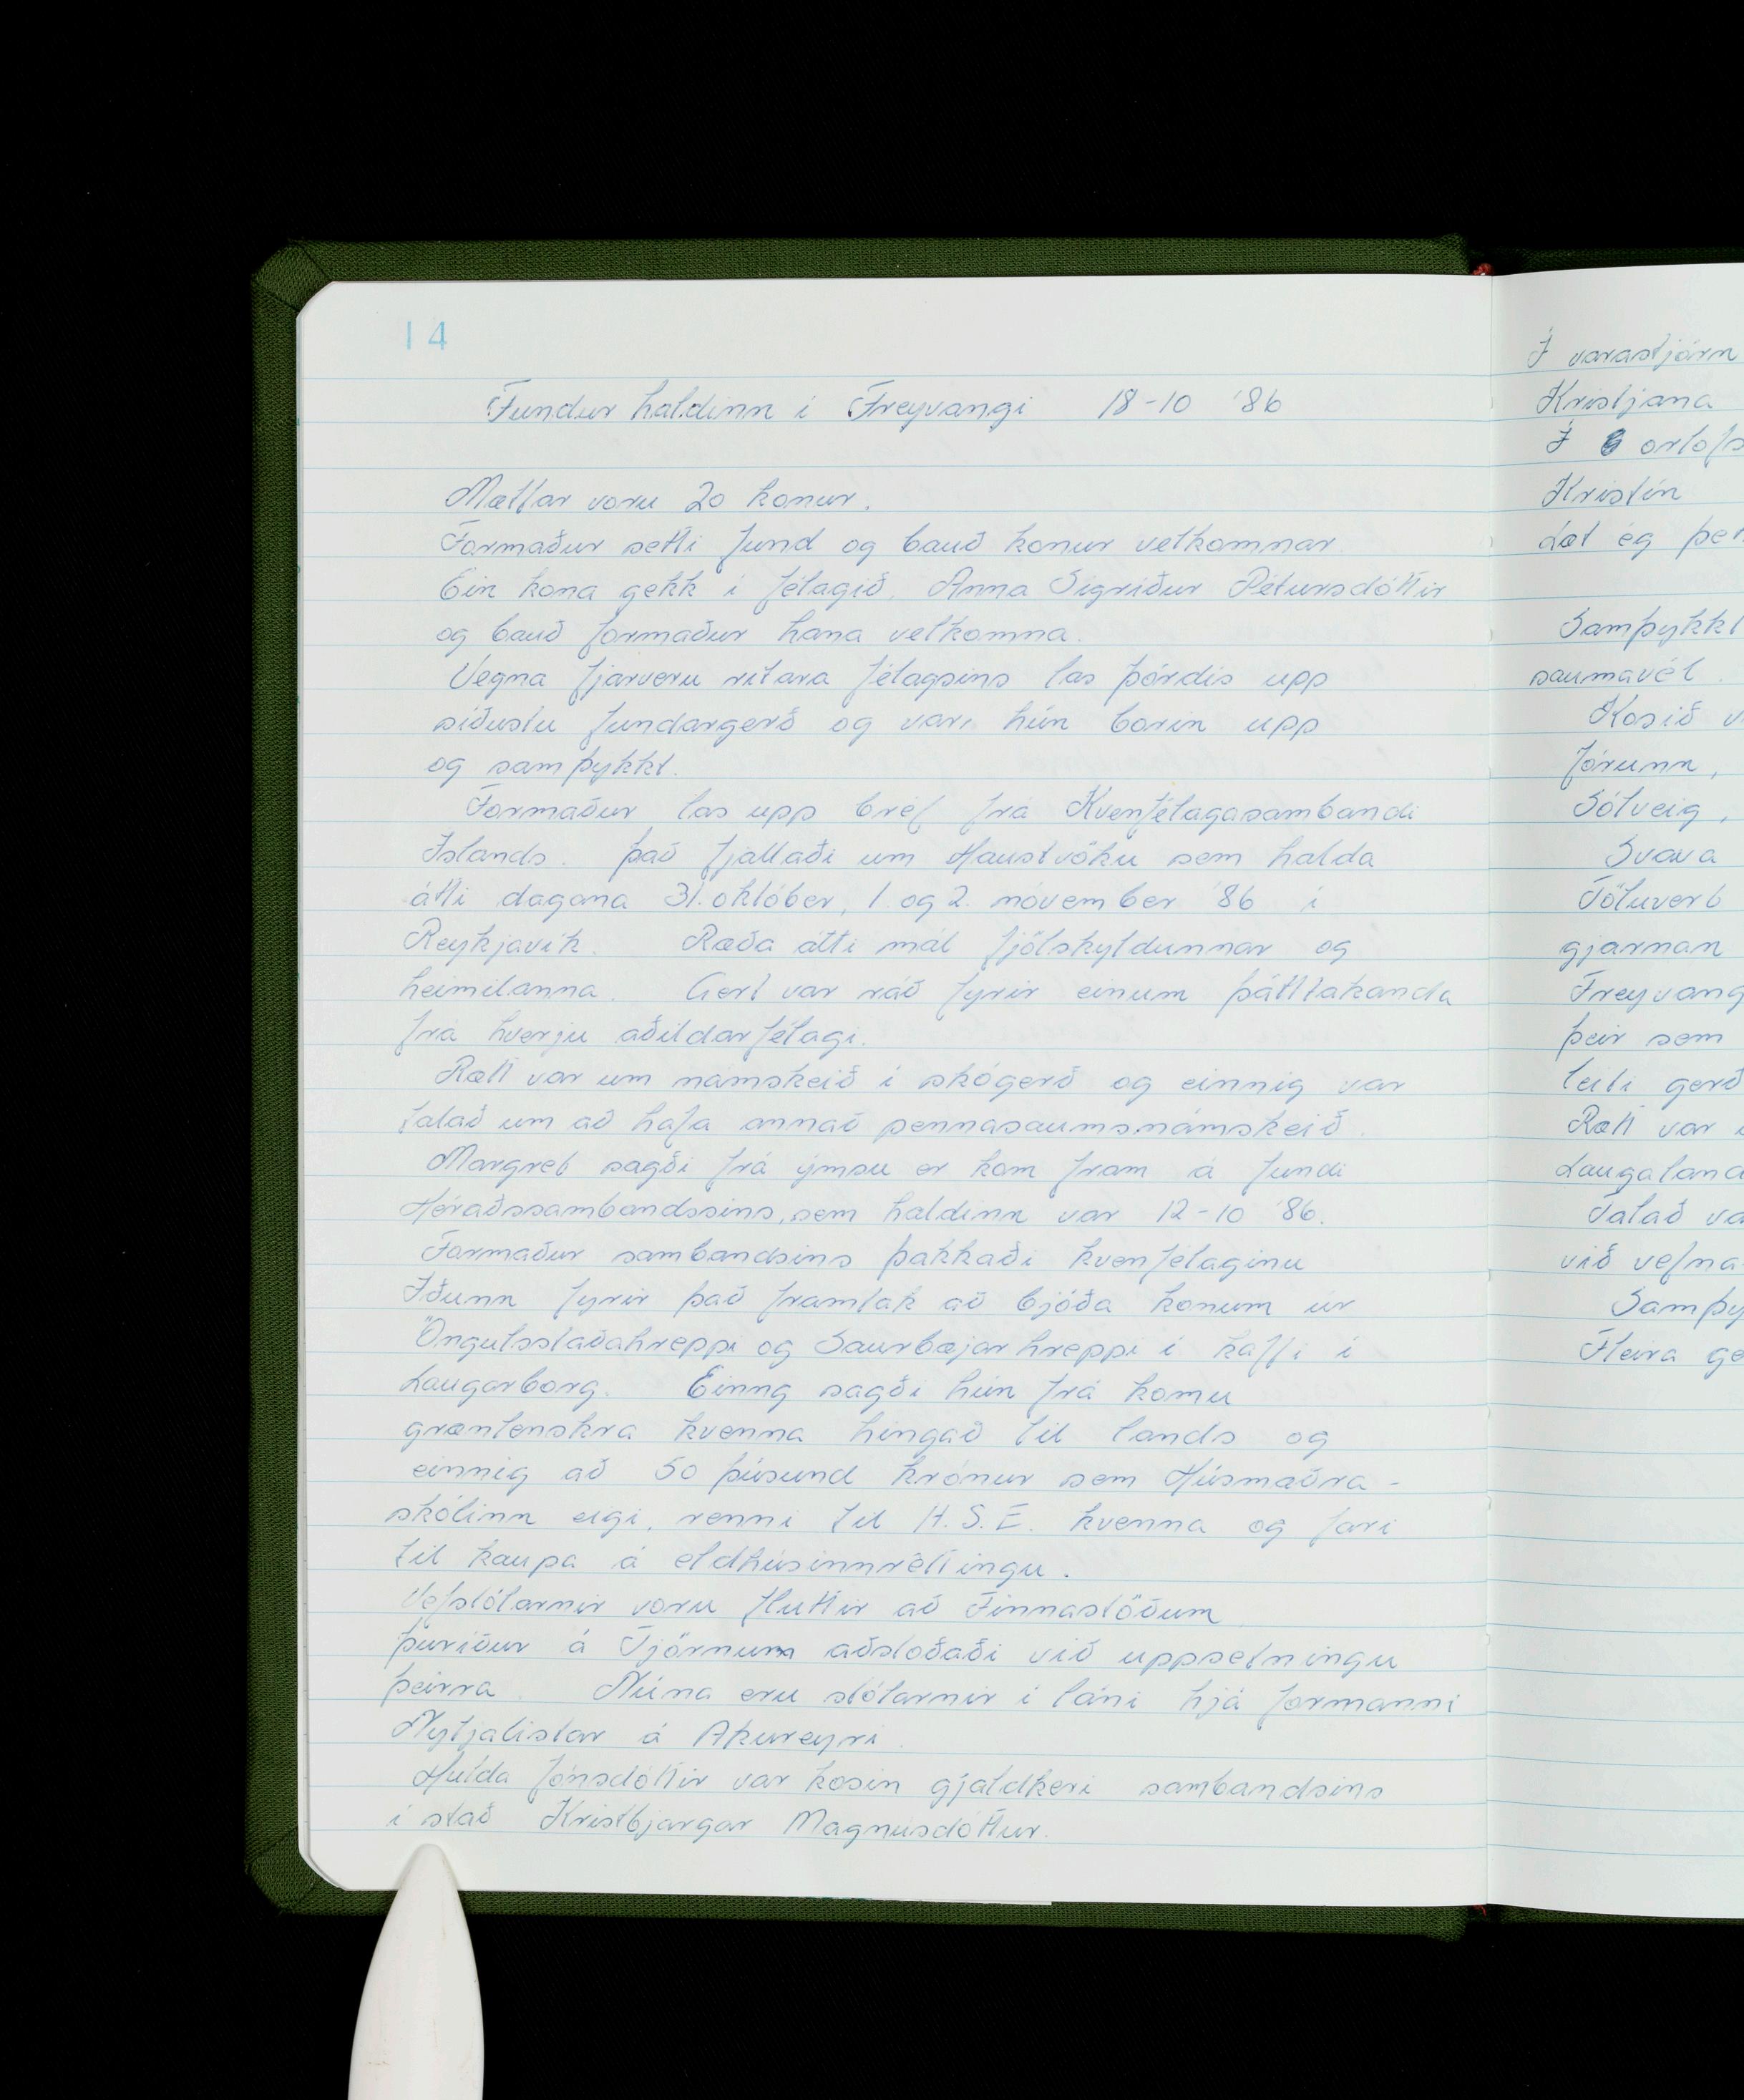 14
Fundur haldinn í Freyvangi 18-10 '86
Mættar voru 20 konur.
Formaður setti fund og bauð konur velkomnar.
Ein kona gekk í félagið, Anna Sigríður Pétursdóttir
og bauð formaður hana velkomna.
Vegna fjarveru ritara félagsins las Þórdís upp
síðustu fundargerð og var hún borin upp
og samþykkt.
Formaður las upp bréf frá Kvenfélagasambandi
Íslands. Það fjallaði um Haustvöku sem halda
átti dagana 31. október, 1. og 2. nóvember '86 í
Reykjavík. Ræða átti mál fjölskyldunnar og
heimilanna. Gert var ráð fyrir einum þátttakanda
frá hverju aðildarfélagi.
Rætt var um námskeið í skógerð og einnig var
talað um að hafa annað pennasaumsnámskeið.
Margret sagði frá ýmsu er kom fram á fundi
Héraðssambandssins, sem haldinn var 12-10 '86.
Formaður sambandsins þakkaði kvenfélaginu
Iðunn fyrir það framtak að bjóða konum úr
Öngulsstaðahreppi og Saurbæjarhreppi í kaffi í
Laugarborg. Einng sagði hún frá komu
grænlenskra kvenna hingað til lands og
einnig að 50 þúsund krónur sem Húsmæðra-
skólinn eigi, renni til H.S.E. kvenna og fari
til kaupa á eldhúsinnréttingu.
Vefstólarnir voru fluttir að Finnastöðum
Þuríður á Tjörnum aðstoðaði við uppsetningu
þeirra. Núna eru stólarnir í láni hjá formanni
Nytjalistar á Akureyri.
Hulda Jónsdóttir var kosin gjaldkeri sambandsins
í stað Kristbjargar Magnusdóttur.
Í varastjórn
Kristjana
Í orlofs
Kristín
Læt ég þet
Samþykkt
saumavél.
Kosið v
Jórunn,
Sólveig,
Svava
Töluverð
gjarnan
Freyvang
þeir sem
leiti gerð
Rætt var
Laugaland
Talað va
við vefna
Samþy
Fleira ge